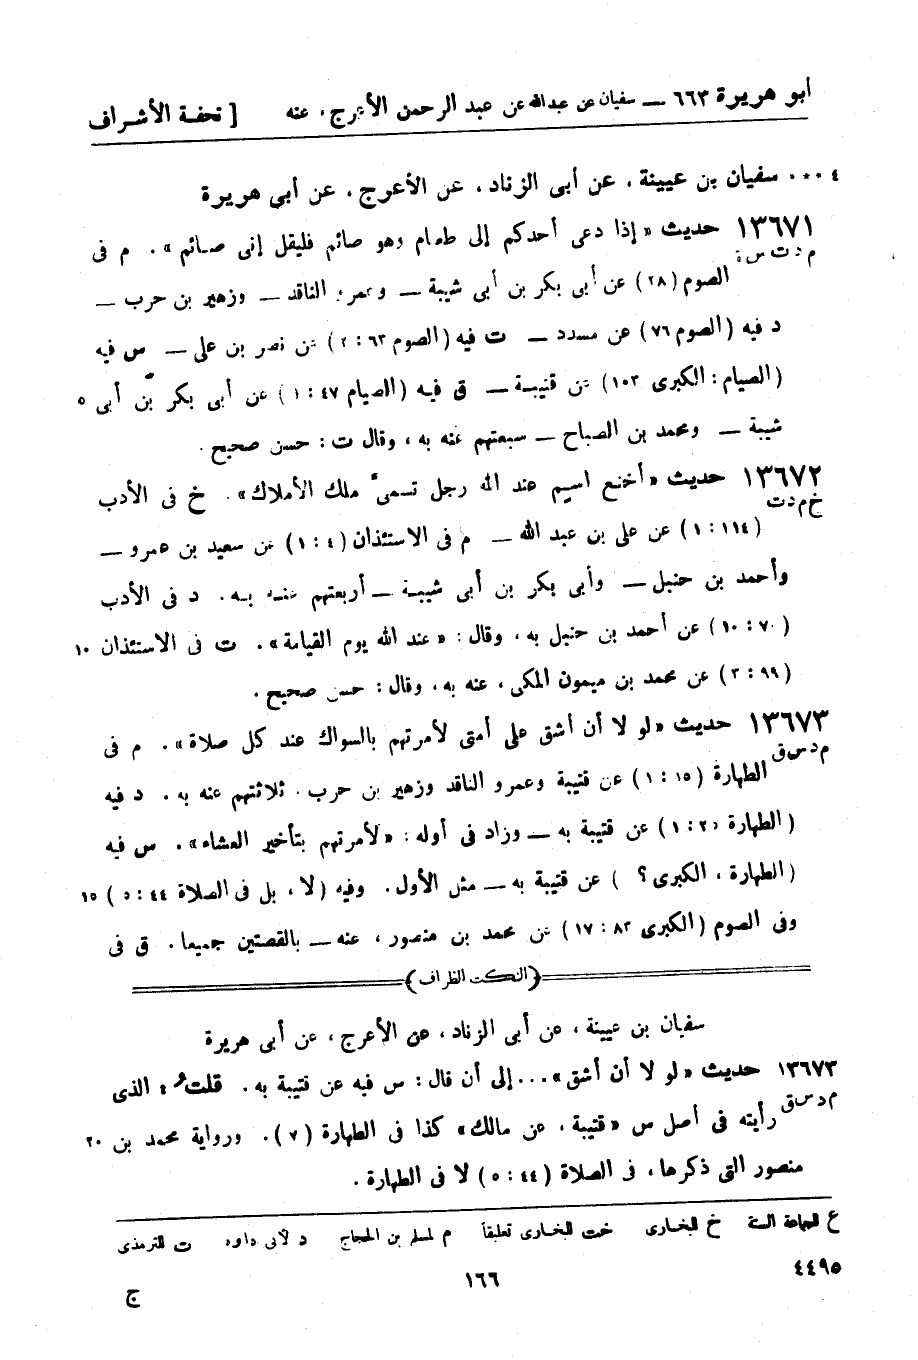 أبو هريرة ٦٦٣ — سفيان عن عبدالله عن عبد الرحمن الأعرج، عنه [ تحفة الأشراف
٤ ٠٠٠ سفيان بن عيينة، عن أبى الزناد، عن الأعرج، عن أبى هريرة
١٣٦٧١ حديث «إذا دعى أحدكم إلى طعام وهو صائم فليقل إنى صائم». م فى
م د ت س ق
الصوم (٢٨) عن أبى بكر بن أبى شيبة — وعمرو الناقد — وزهير بن حرب —
د فيه (الصوم ٧٦) عن مسدد — ت فيه (الصوم ٦٣ : ٢) عن نصر بن على — س فيه
(الصيام : الكبرى ١٠٣) عن قتيبة — ق فيه (الصيام ٤٧ : ١) عن أبى بكر بن أبى ٥
شيبة — ومحمد بن الصباح — سبعتهم عنه به، وقال ت : حسن صحيح.
١٣٦٧٢ حديث «أخنع اسم عند الله رجل تسمى ملك الأملاك». خ فى الأدب
خ م د ت
(١١٤ : ١) عن على بن عبد الله — م فى الاستئذان (٤ : ١) عن سعيد بن عمرو —
وأحمد بن حنبل — وأبى بكر بن أبى شيبة — أربعتهم عنه به. د فى الأدب
(٧٠ : ١٠) عن أحمد بن حنبل به، وقال : «عند الله يوم القيامة». ت فى الاستئذان ١٠
(٩٩ : ٣) عن محمد بن ميمون المكى، عنه به، وقال : حسن صحيح.
١٣٦٧٣ حديث «لو لا أن أشق على أمتى لأمرتهم بالسواك عند كل صلاة». م فى
م د س ق
الطهارة (١٥ : ١) عن قتيبة وعمرو الناقد وزهير بن حرب. ثلاثتهم عنه به. د فيه
(الطهارة ٢٥ : ١) عن قتيبة به — وزاد فى أوله : «لأمرتهم بتأخير العشاء». س فيه
(الطهارة، الكبرى ؟ ) عن قتيبة به — مثل الأول. وفيه (لا، بل فى الصلاة ٤٤ : ٥) ١٥
وفى الصوم (الكبرى ٨٣ : ١٧) عن محمد بن منصور، عنه — بالقصتين جميعا. ق فى
(النكت الظراف)
سفيان بن عيينة، عن أبى الزناد، عن الأعرج، عن أبى هريرة
١٣٦٧٣ حديث «لو لا أن أشق»... إلى أن قال : س فيه عن قتيبة به. قلت : الذى
م د س ق
رأيته فى أصل س «قتيبة، عن مالك» كذا فى الطهارة (٧). ورواية محمد بن ٢٠
منصور التى ذكرها، فى الصلاة (٤٤ : ٥) لا فى الطهارة.
ع للجماعة الستة خ للبخارى خت للبخارى تعليقاً م لمسلم بن الحجاج د لأبى داود ت للترمذى
٤٤٩٥ ١٦٦ ج